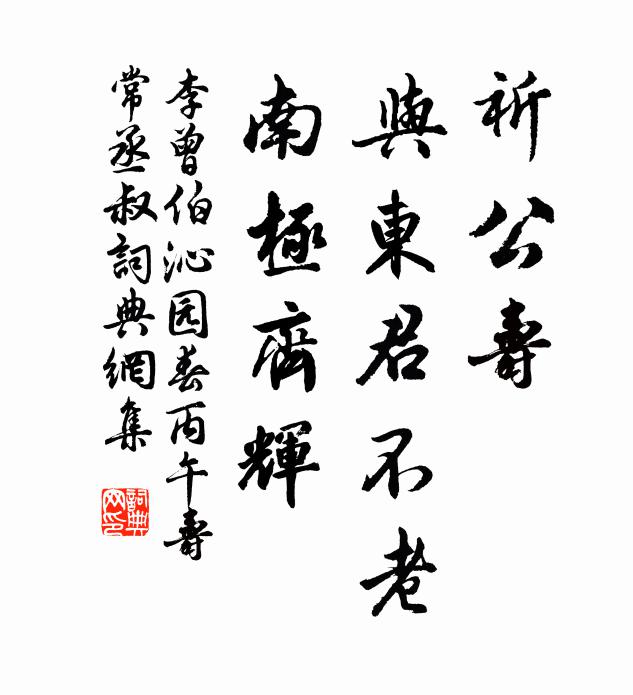 祈公壽
與東君不老
南極齊輝
李曾伯沁园春丙午壽
常丞叔詞典網集
詞典网印